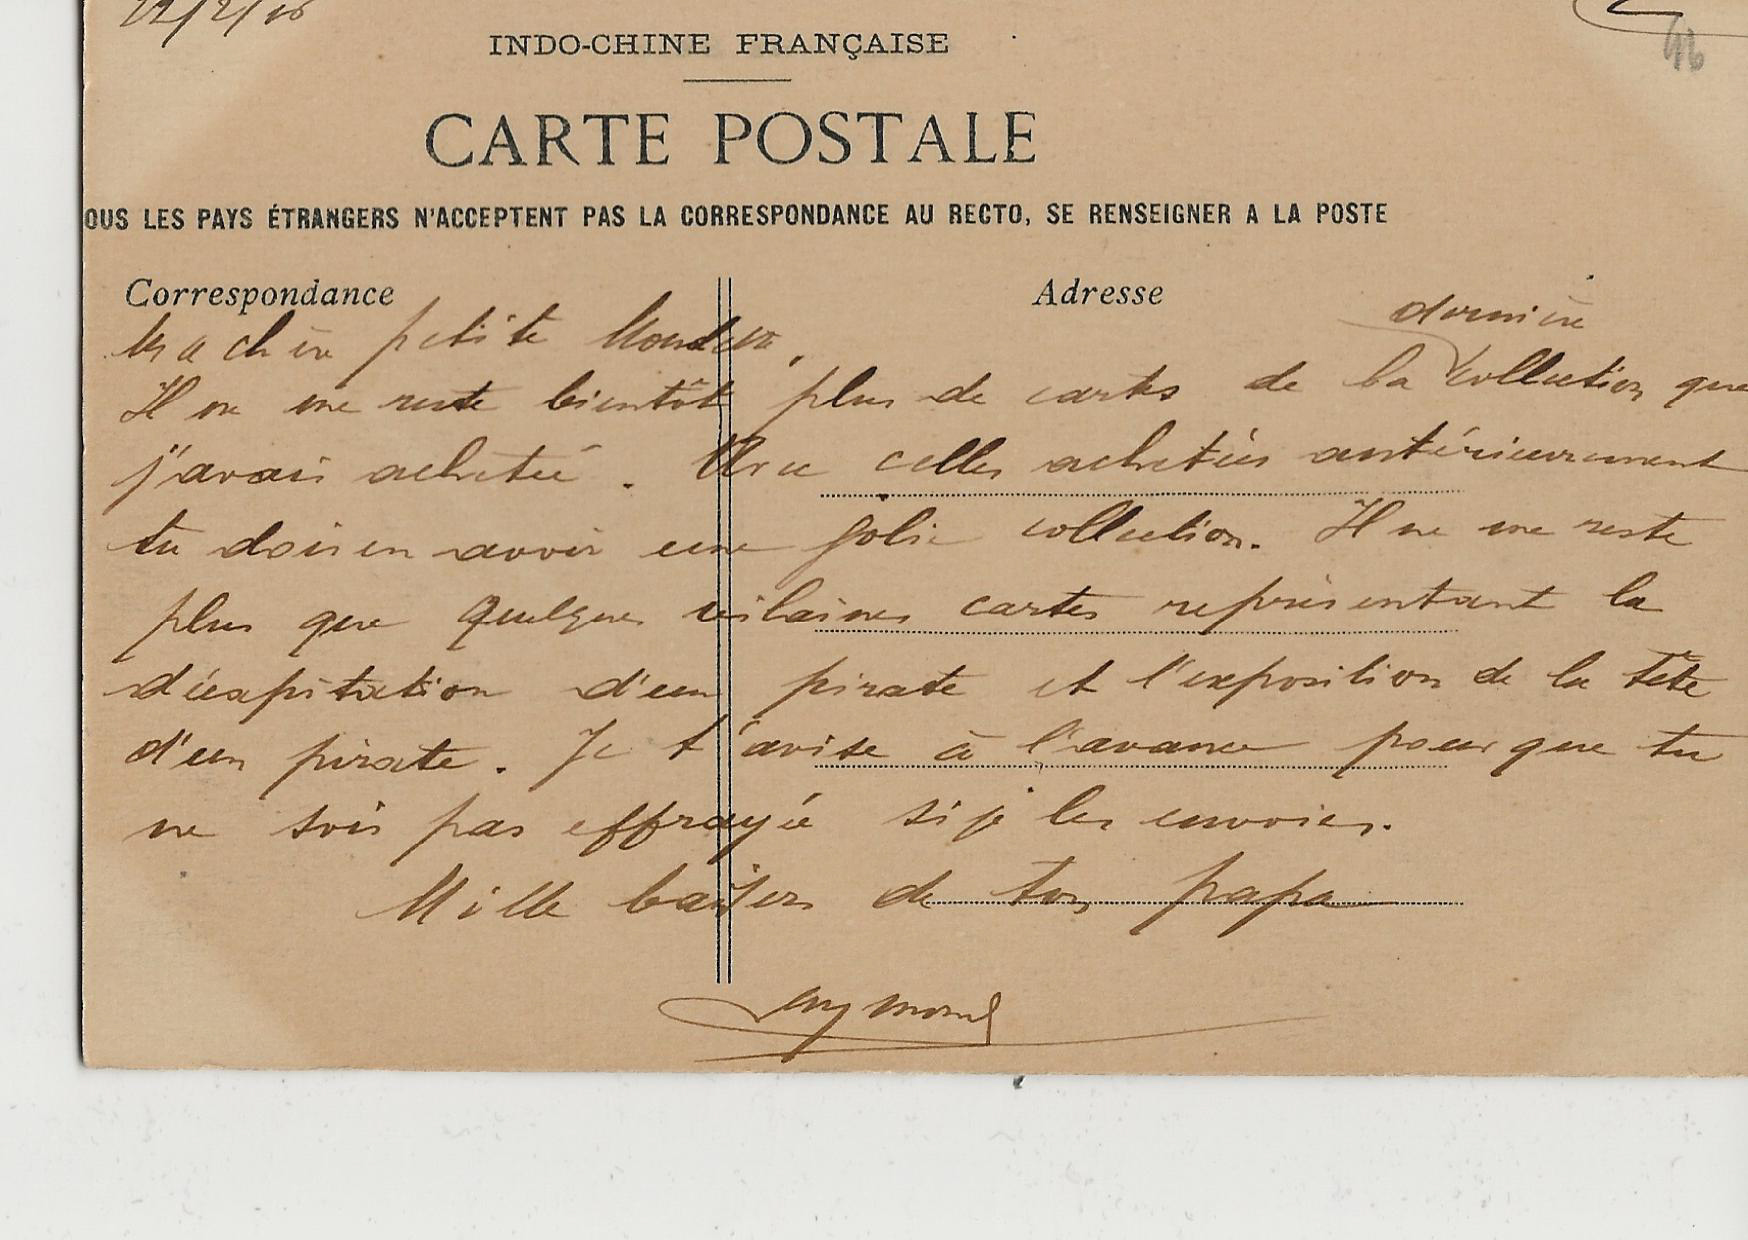 12/2/16
INDO-CHINE FRANÇAISE
46
CARTE POSTALE
OUS LES PAYS ÉTRANGERS N'ACCEPTENT PAS LA CORRESPONDANCE AU RECTO, SE RENSEIGNER A LA POSTE
Correspondance
Adresse
Ma chère petite
dernière
Il ne me reste bientôt plus de cartes de la collection que
j'avais acheteé. Avec celles achetées antérieurement
tu dois en avoir une jolie collection. Il ne me reste
plus que quelques vilaines cartes représentant la
décapitation d'un pirate et l'exposition de la tête
d'un pirate. Je t'avise à l'avance pour que tu
ne sois pas effrayée si je les envoies.
Mille baisers de ton papa
Raymond